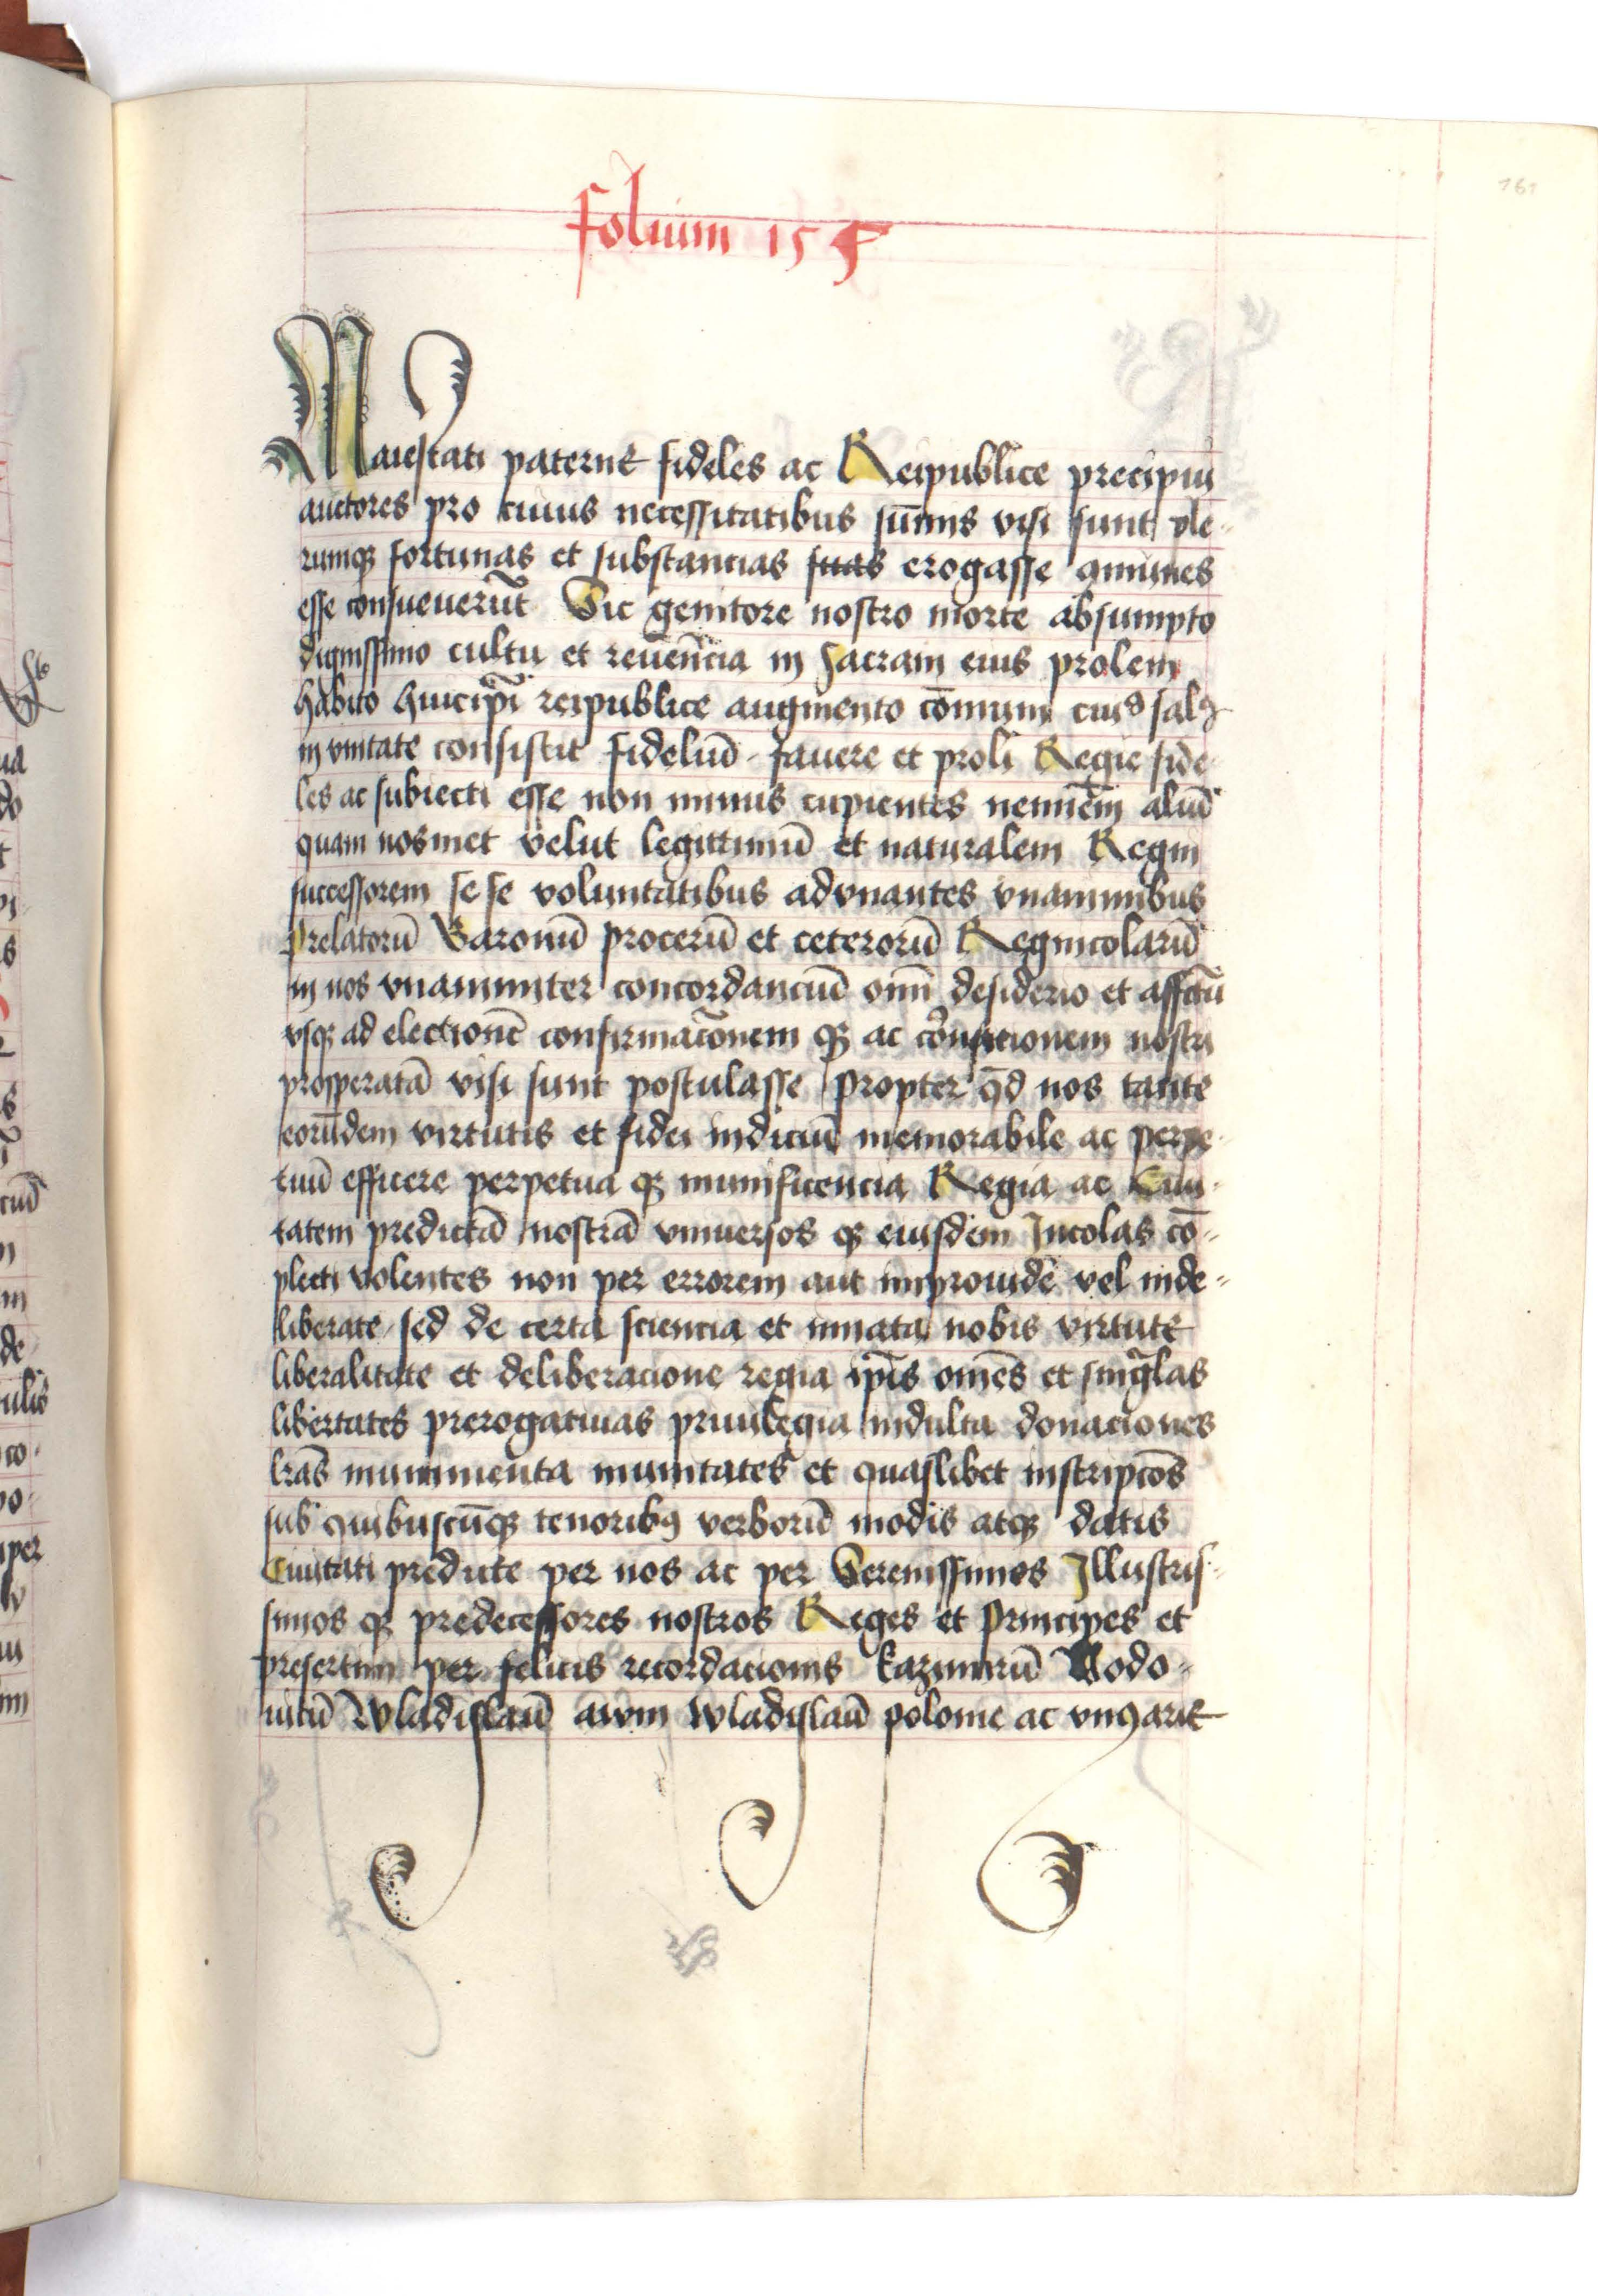 folium 155
161
Maiestati paterne fideles ac Reipublice precipui
auctores pro cuius necessitatibus sūmis visi sunt ple-
rumq fortunas et substancias suas erogasse
esse consueuerūt Sic genitore nostro morte absumpto
dignissimo cultu et reuēncia in sacram eius prolem
habito huicip̄i reipublice augmento cōmuni
in vnitate consistit fideliū fauere et proli Regie fide-
les ac subiecti esse non minus cupientes neminē aliū
quam nosmet velut legittimū et naturalem Regni
successorem se se voluntatibus advnantes vnanimibus
Prelatorū Baronū procerū et ceterorū Regnicolarū
in nos vnanimiter concordanciū omī desiderio et affctū
vsq ad electionē confirmac̄onem q ac cōronationem nostri
prosperatā visi sunt postulasse Propter qd̄ nos tante
eorūdem virtutis et fidei indiciū memorabile ac perpe-
tuū efficere perpetua q munificencia Regia ac Ciui-
tatem predictā nostrā vniuersos q eiusdem Incolas cō-
plecti volentes non per errorem aut improuide vel inde-
liberate sed de certa sciencia et innata nobis virtute
liberalitate et deliberacione regia ip̄is omēs et singlas
libertates prerogatiuas priuilegia indulta donaciones
lrās munimenta munitates et quaslibet inscripcōs
sub quibuscūq tenorib9 verborū modis atq datis
Ciuitati predicte per nos ac per Serenissimos Illustris-
simos q predecessores nostros Reges et Principes et
presertim per felicis recordacionis kazimirū Lodo-
uicū Wladislaū auum Wladislaū polonie ac vngarie